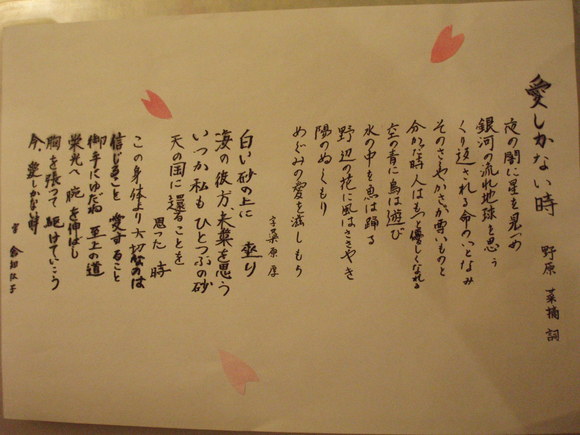 愛しかない時
野原 菜摘 詞
夜の闇に星を見つめ
銀河の流れ地球を思う
くり返される命のいとなみ
そのささやかさが尊いものと
分かる時人はもっと優しくなれる
空の青に鳥は遊び
水の中を魚は踊る
野辺の花に風はささやき
陽のぬくもり
めぐみの愛を惑しもう
字 桑原
白い砂の上に 座り
凄の彼方、未葉を思う
いつか私もひとつぶの砂
天の国に還ることを
思った 時
この身体より大切なのは
信じること 愛すること
御手にゆだね 至上の道
栄光へ 腕を伸ばし
胸を張って 駆けていこう
今、愛しかない時
字